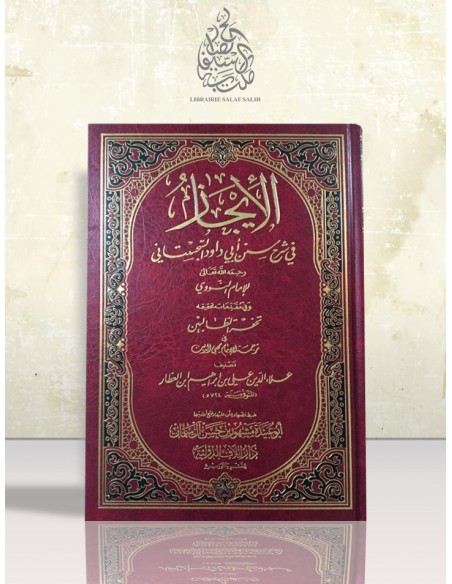 LIBRAIRIE SALAF SALIH
الإيجاز
في شرح سنن أبي داود السجستاني
رحمه الله تعالى
للإمام النووي
وفي مقدمات تحقيقه
تحفة الطالبين
في
ترجمة الإمام محيي الدين
تصنيف
علاء الدين علي بن إبراهيم ابن العطار
أبو عبيدة مشهور بن حسن آل سلمان
الدار الأثرية